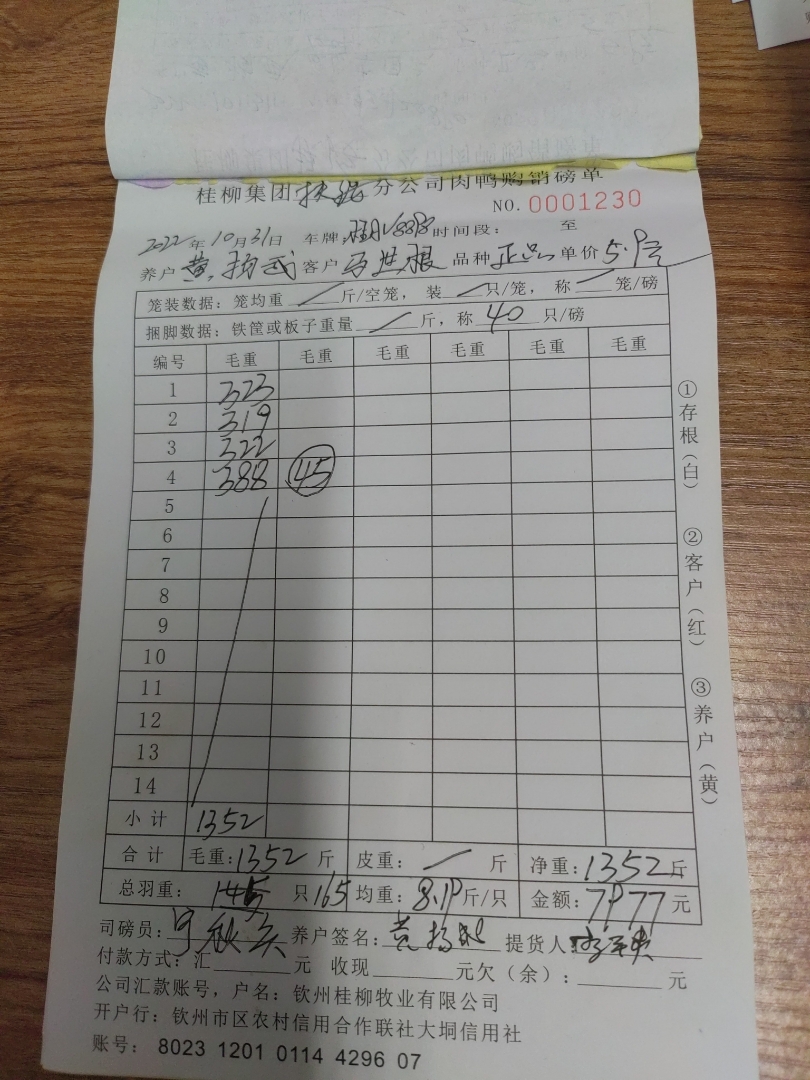 桂柳集团扶绥分公司肉鸭购销磅单
NO. 0001230
2022年10月31日 车牌: 时间段: 至
养户 黄 客户 马世根 品种 正品 单价 5.9元
笼装数据: 笼均重 / 斤/空笼, 装 / 只/笼, 称 / 笼/磅
捆脚数据: 铁筐或板子重量 / 斤, 称 40 只/磅
编号 毛重 毛重 毛重 毛重 毛重 毛重
1 323
2 319
3 322
4 388 45
5
6
7
8
9
10
11
12
13
14
小计 1352
合计 毛重: 1352 斤 皮重: / 斤 净重: 1352 斤
总羽重: 只 165 均重: 8.19 斤/只 金额: 7977 元
司磅员: 养户签名: 黄 提货人:
付款方式: 汇 元 收现 元欠(余): 元
公司汇款账号, 户名: 钦州桂柳牧业有限公司
开户行: 钦州市区农村信用合作联社大垌信用社
账号: 8023 1201 0114 4296 07
①存根(白)
②客户(红)
③养户(黄)